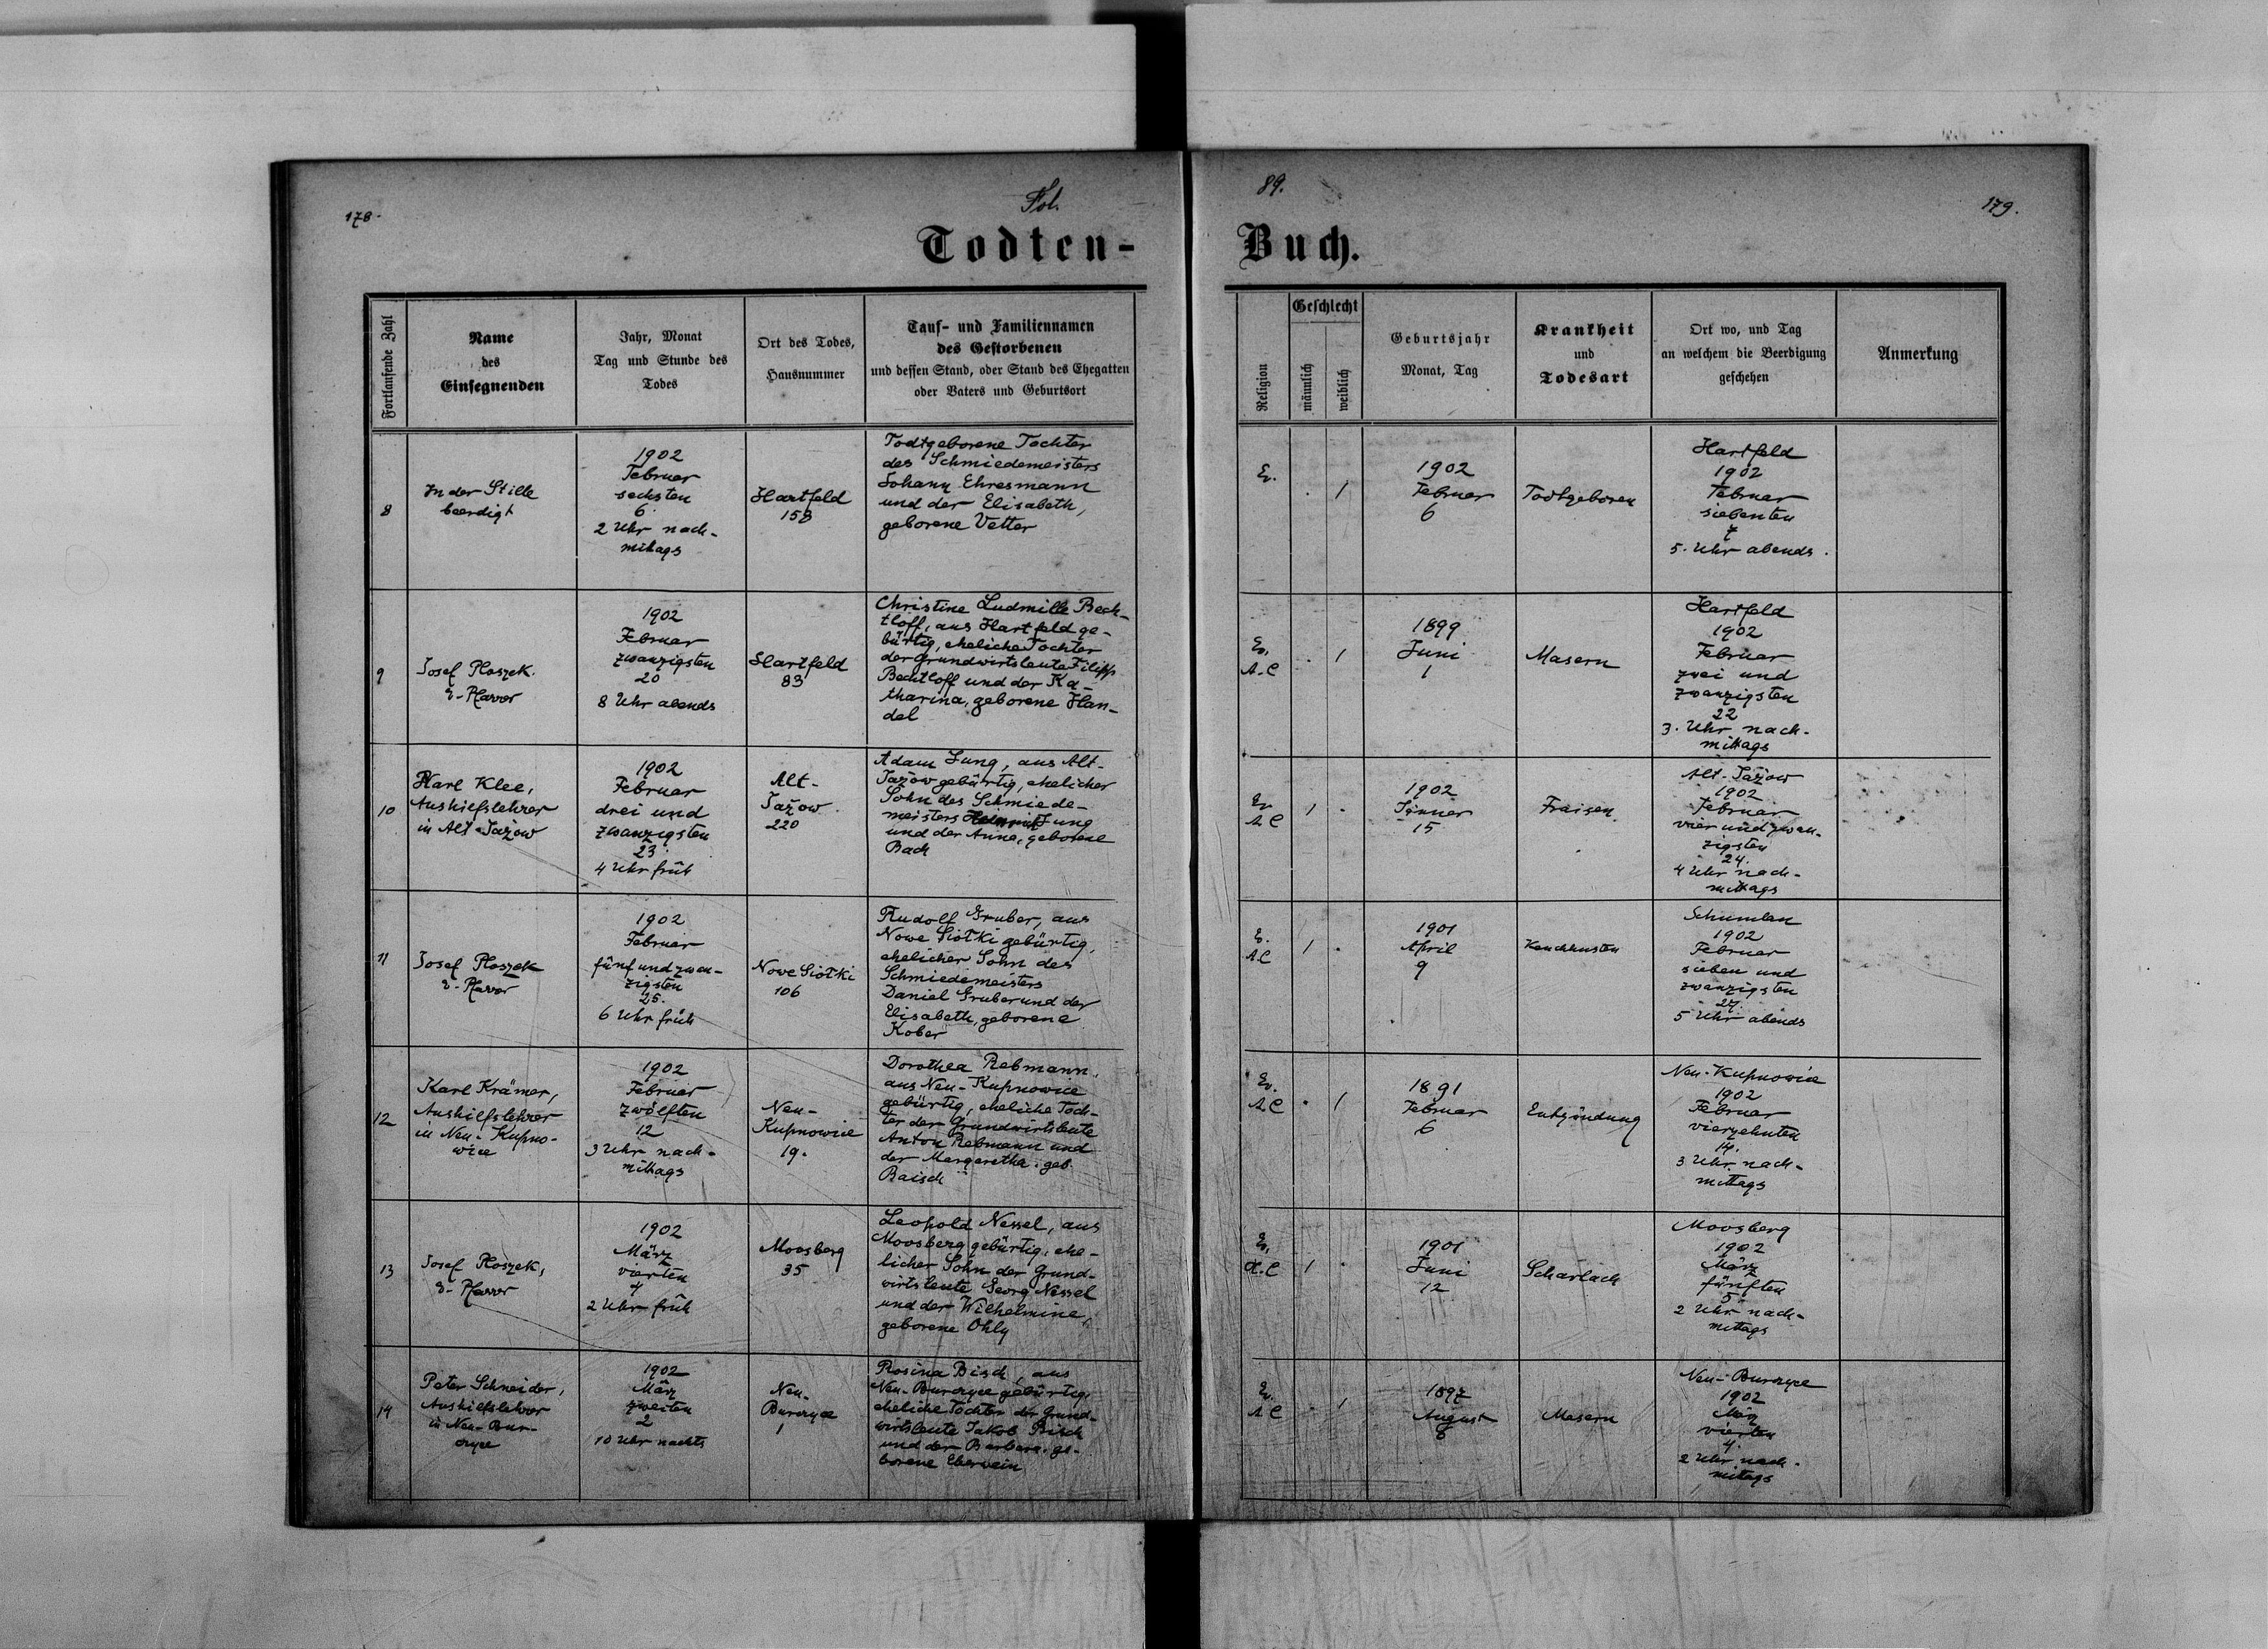 178.
Fol.
89.
179.
Todten-
Buch.
Fortlaufende Zahl
Name
des
Einsegnenden
Jahr, Monat
Tag und Stunde des
Todes
Ort des Todes,
Hausnummer
Tauf- und Familiennamen
des Gestorbenen
und dessen Stand, oder Stand des Ehegatten
oder Vaters und Geburtsort
Religion
Geschlecht
männlich
weiblich
Geburtsjahr
Monat, Tag
Krankheit
und
Todesart
Ort wo, und Tag
an welchem die Beerdigung
geschehen
Anmerkung
8
In der Stille
beerdigt
1902
Februar
sechsten
6
2 Uhr nach-
mittags
Hartfeld
158
Todtgeborene Tochter
des Schmiedemeisters
Johann Ehresmann
und der Elisabeth,
geborene Vetter
Ev.
. 1
1902
Februar
6
Todtgeboren
Hartfeld
1902
Februar
siebenten
7
5. Uhr abends.
9
Josef Ploszek.
E-Pfarrer
1902
Februar
zwanzigsten
20
8 Uhr abends
Hartfeld
83
Christine Ludmille Bech-
tloff, aus Hartfeld ge-
bürtig, eheliche Tochter
der Grundwirtsleute Filipp
Bechtloff und der Ka-
tharina, geborene Han-
del
Ev.
A.C
. 1
1899
Juni
1
Masern
Hartfeld
1902
Februar
zwei und
zwanzigsten
22
3. Uhr nach-
mittags
10
Karl Klee,
Aushilfslehrer
in Alt-Jażow
1902
Februar
drei und
zwanzigsten
23
4 Uhr früh
Alt-
Jażow
220
Adam Jung, aus Alt-
Jażow gebürtig, ehelicher
Sohn des Schmiede-
meisters Jung
und der Anna, geborene
Bach
Ev.
A C
1 .
1902
Jänner
15
Fraisen.
Alt-Jażow
1902
Februar
vier und zwan-
zigsten
24.
4 Uhr nach-
mittags
11
Josef Ploszek
E-Pfarrer
1902
Februar
fünf und zwan-
zigsten
25.
6 Uhr früh
Nowe Siołki
106
Rudolf Gruber, aus
Nowe Siołki gebürtig,
ehelicher Sohn des
Schmiedemeisters
Daniel Gruber und der
Elisabeth, geborene
Kober
E.
A C
1 .
1901
April
9
Keuchhusten
Schumlau
1902
Februar
sieben und
zwanzigsten
27.
5 Uhr abends
12
Karl Krämer,
Aushilfslehrer
in Neu-Kupno-
wice
1902
Februar
zwölften
12
3 Uhr nach-
mittags
Neu-
Kupnowice
19.
Dorothea Rebmann,
aus Neu-Kupnowice
gebürtig, eheliche Toch-
ter der Grundwirtsleute
Anton Rebmann und
der Margaretha, geb.
Baisch
Ev.
A.C
. 1
1891
Februar
6
Entzündung
Neu-Kupnowice
1902
Februar
vierzehnten
14.
3 Uhr nach-
mittags
13
Josef Ploszek,
E-Pfarrer
1902
März
vierten
4
2 Uhr früh
Moosberg
35
Leopold Nessel, aus
Moosberg gebürtig, ehe-
licher Sohn der Grund-
wirtsleute Georg Nessel
und der Wilhelmine,
geborene Ohly
Ev.
A.C
1 .
1901
Juni
12
Scharlach
Moosberg
1902
März
fünften
5.
2 Uhr nach-
mittags
14
Peter Schneider,
Aushilfslehrer
in Neu-Bur-
czyce
1902
März
zweiten
2
10 Uhr nachts
Neu-
Burczyce
1
Rosina Bisch, aus
Neu-Burczyce gebürtig,
eheliche Tochter der Grund-
wirtsleute Jakob Bisch
und der Barbara, ge-
borene Eberwein
Ev.
A C
. 1
1897
August
8
Masern
Neu-Burczyce
1902
März
vierten
4.
2 Uhr nach-
mittags